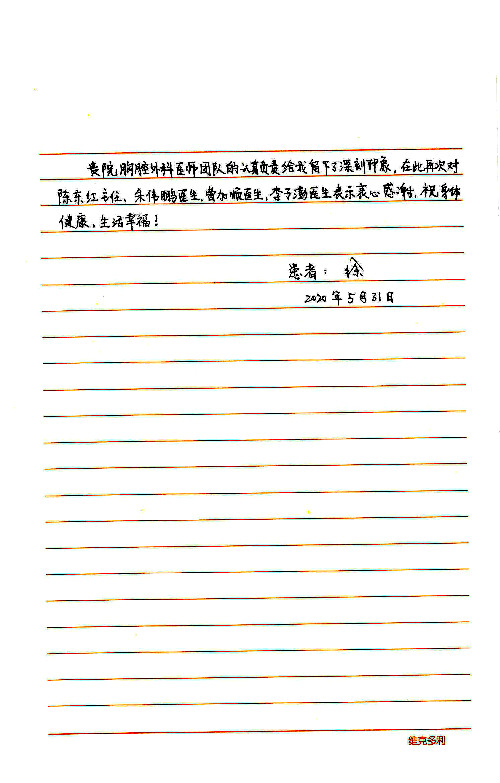 贵院胸腔外科医师团队的认真负责给我留下了深刻印象,在此再次对
陈东红主任、朱伟鹏医生,曾加顺医生,李子渤医生表示衷心感谢!祝身体
健康,生活幸福!
患者:徐
2020年5月31日
维克多利